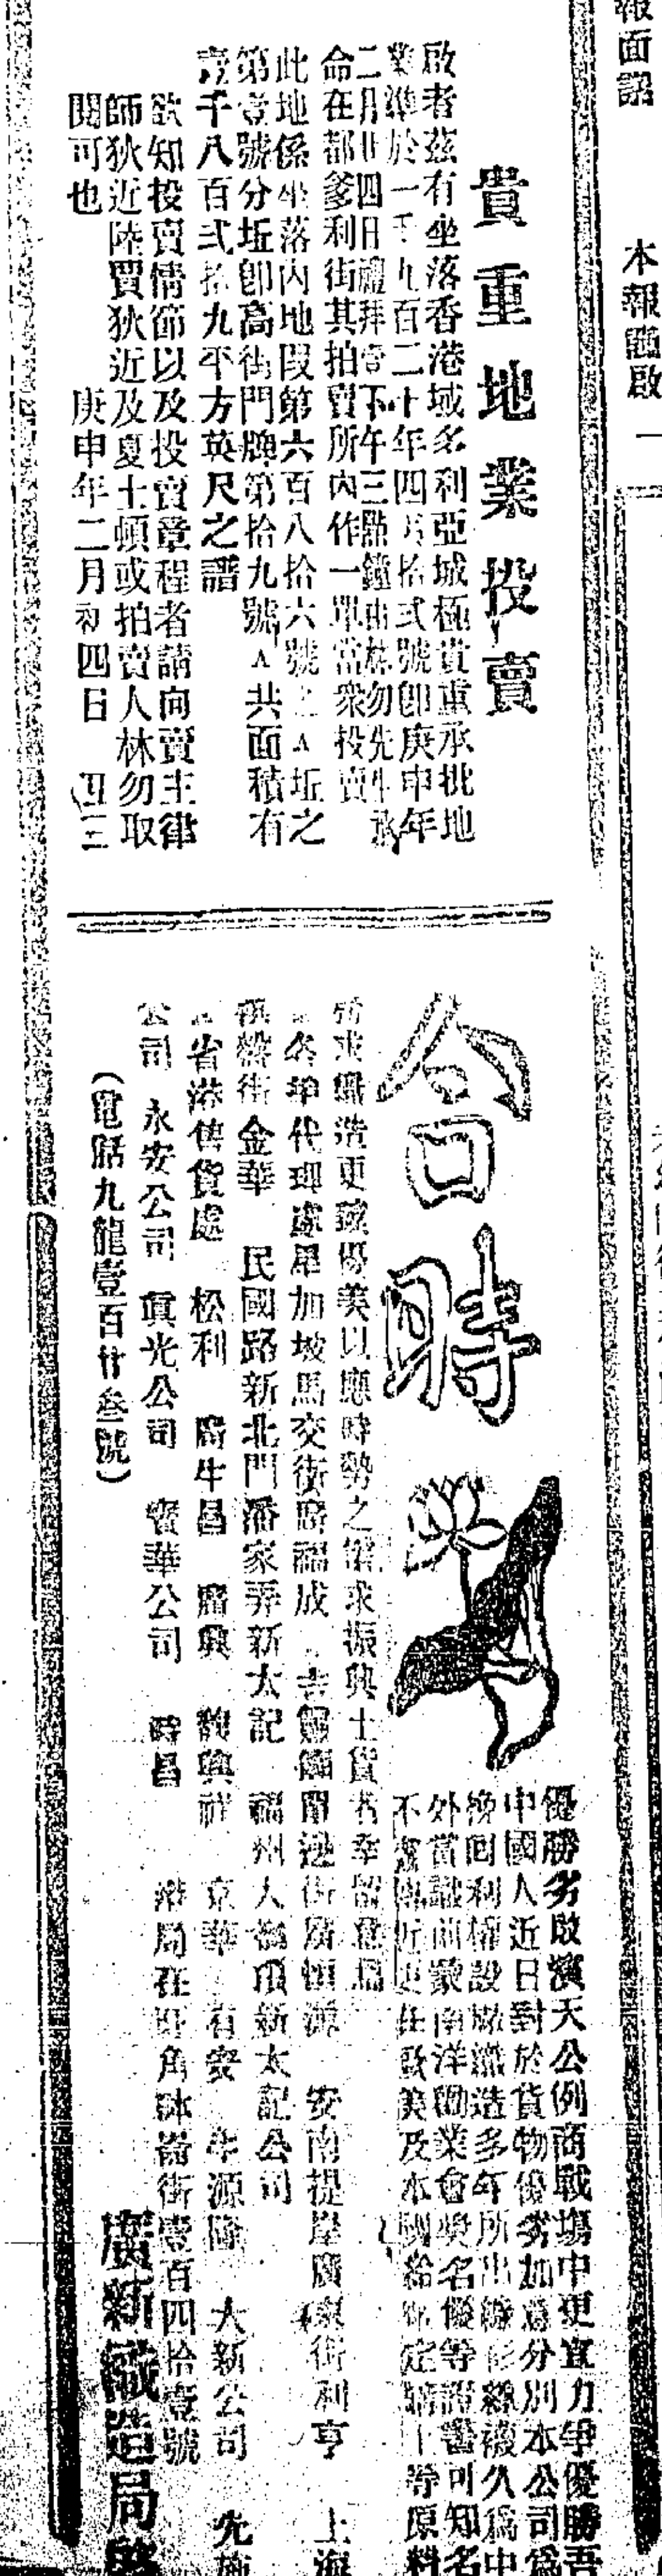 報面認
本報面啟
貴重地業投賣
啟者茲有坐落香港域多利亞城極貴重承批地
業準於一千九百二十年四月拾弍號卽庚申年
二月廿四日禮拜壹下午三點鐘由林勿先生承
命在都爹利街其拍賣所內作一單當衆投賣
此地係坐落內地段第六百八拾六號之A址之
第壹號分址卽高街門牌第拾九號A共面積有
壹千八百弍拾九平方英尺之譜
欲知投賣情節以及投賣章程者請向賣主律
師狄近陸賈狄近及夏士頓或拍賣人林勿取
閱可也
庚申年二月初四日
合時
優勝劣敗濱天公例商戰塲中更宜力爭優勝吾
中國人近日對於貨物優劣加意分別本公司爲
挽回利權設廠織造多年所出線衫線襪久爲中
外賞識前蒙南洋勸業會獎名優等證書可知名
不虛傳近更在歐美及本國給
等原料
織造更臻優美以應時勢之需求振興土貨者幸留意焉
各埠代理處星加坡馬交街廣福成
街廣恒源 安南提岸廣東街利亨 上海
街金華 民國路新北門潘家弄新太記 福州大橋頂新太記公司
省港售貨處 松利 廣生昌 廣興 興祥 京華 有安 生源隆 大新公司 先施
公司 永安公司 眞光公司 寶華公司 時昌 港局在旺角砵崙街壹百四拾壹號
(電話九龍壹百廿叁號)
廣新織造局啟